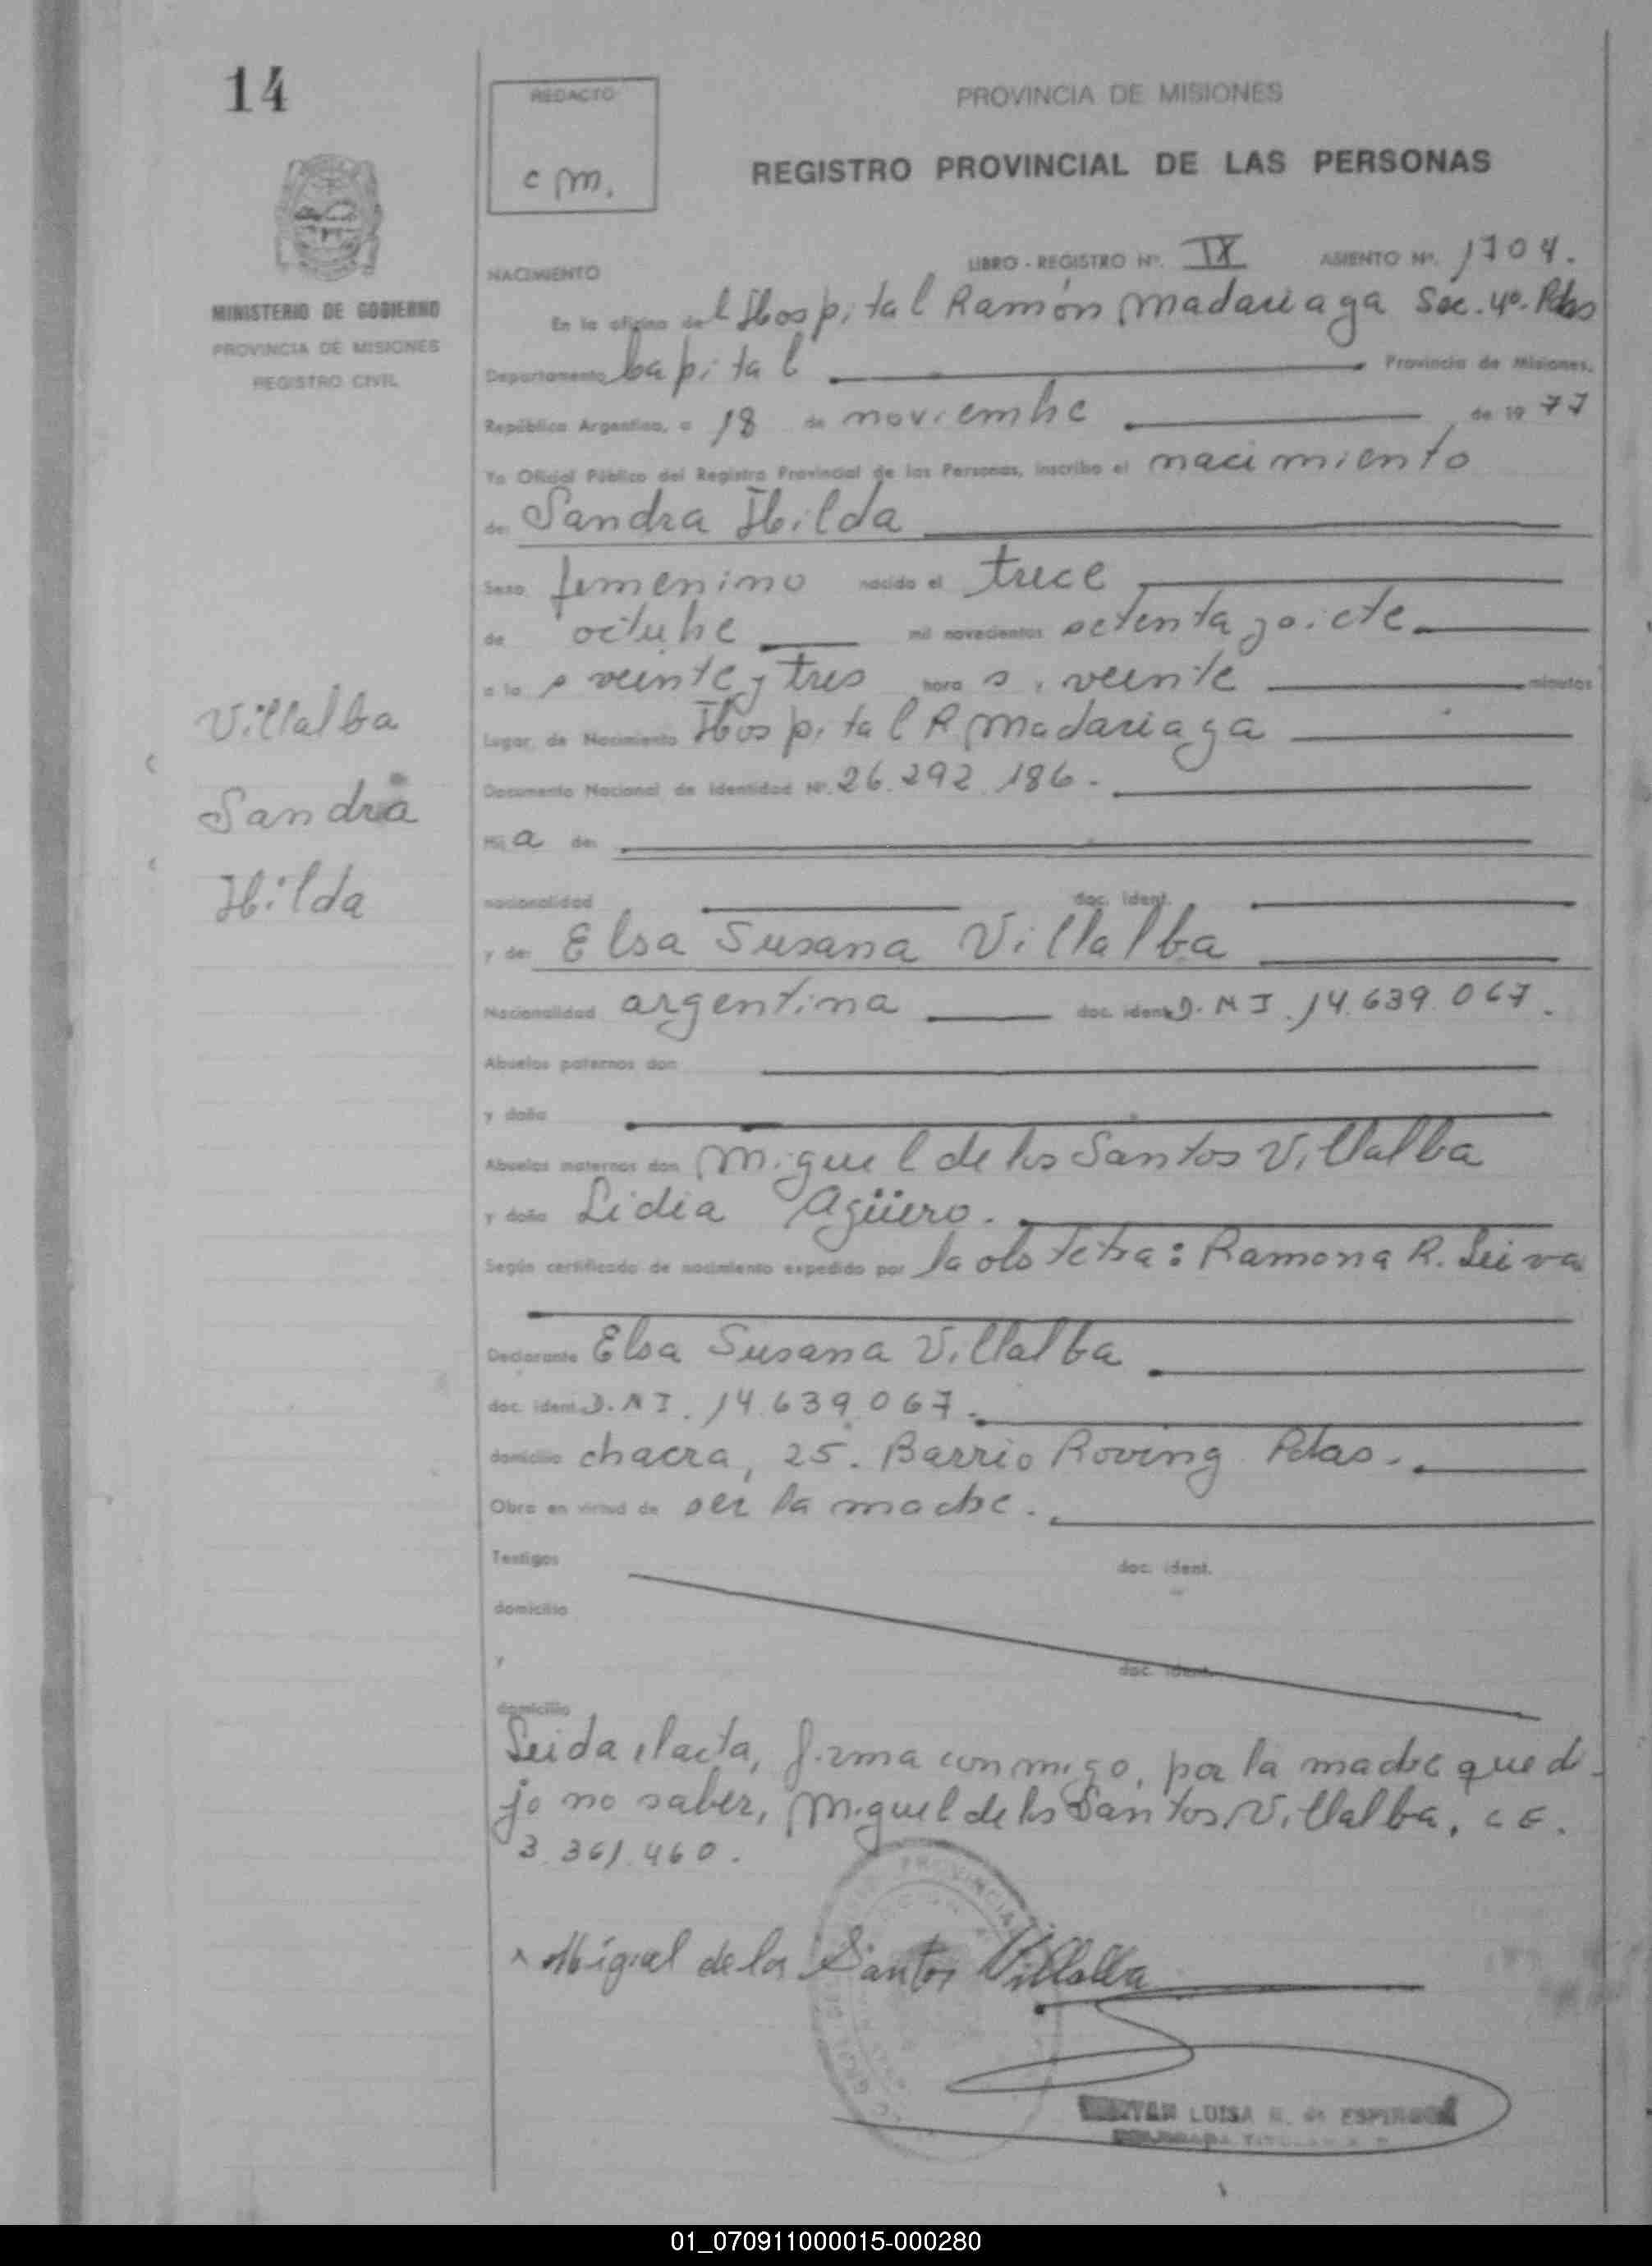 14
REDACTO
c m.
PROVINCIA DE MISIONES
REGISTRO PROVINCIAL DE LAS PERSONAS
LIBRO - REGISTRO Nº. IX ASIENTO Nº. 1704.
NACIMIENTO
MINISTERIO DE GOBIERNO
PROVINCIA DE MISIONES
REGISTRO CIVIL
En la oficina del Hospital Ramón Madariaga Sec. 4º. Pdas
Departamento Capital Provincia de Misiones,
República Argentina, a 18 de noviembre de 19 77
Yo Oficial Público del Registro Provincial de las Personas, inscribo el nacimiento
de: Sandra Hilda
Sexo femenino nacido el trece
de octubre mil novecientos setenta y siete
a la s veinte y tres hora s, veinte minutos
Lugar de Nacimiento Hospital R Madariaga
Documento Nacional de Identidad Nº. 26.292.186.
Hij a de:
nacionalidad doc. ident.
y de: Elsa Susana Villalba
Nacionalidad argentina doc. ident. D.N.I. 14.639.067.
Abuelos paternos don
y doña
Abuelos maternos don Miguel de los Santos Villalba
y doña Lidia Agüero.
Según certificado de nacimiento expedido por la obstetra: Ramona R. Leiva
Declarante Elsa Susana Villalba
doc. ident. D.N.I. 14.639.067.
domicilio chacra, 25. Barrio Roving Pdas.
Obra en virtud de ser la madre.
Testigos doc. ident.
domicilio
y doc. ident.
domicilio
Leida el acta, firma conmigo, por la madre que di-
jo no saber, Miguel de los Santos Villalba, C E.
3.361.460.
Miguel de los Santos Villalba
LUISA de ESPINOSA
Villalba
Sandra
Hilda
01_070911000015-000280